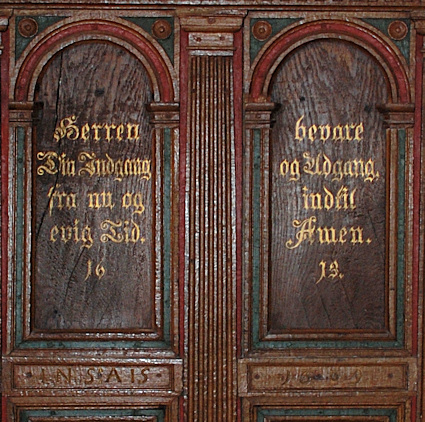 Herren
Din Indgang
fra nu og
evig Tid.
16
bevare
og Udgang,
indtil
Amen.
13.